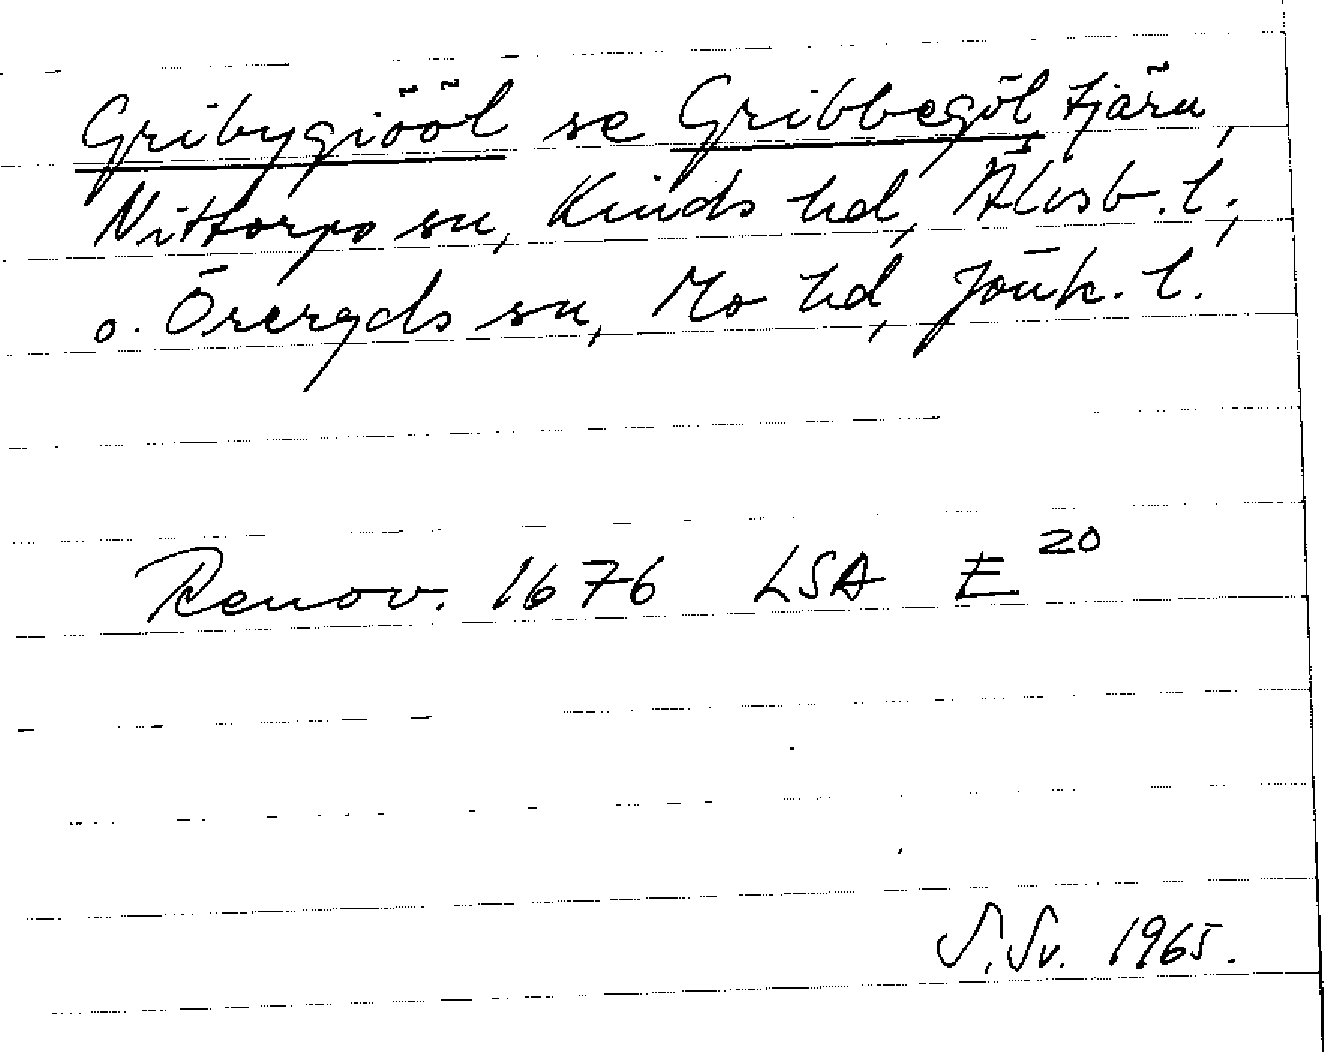 Gribygiööl se Gribbegöl, tjärn,
Nittorps sn, Kinds hd, Älvsb. l.,
o. Öreryds sn, Mo hd, Jönk. l.
Renov. 1676 LSA E 20
S. Sv. 1965.